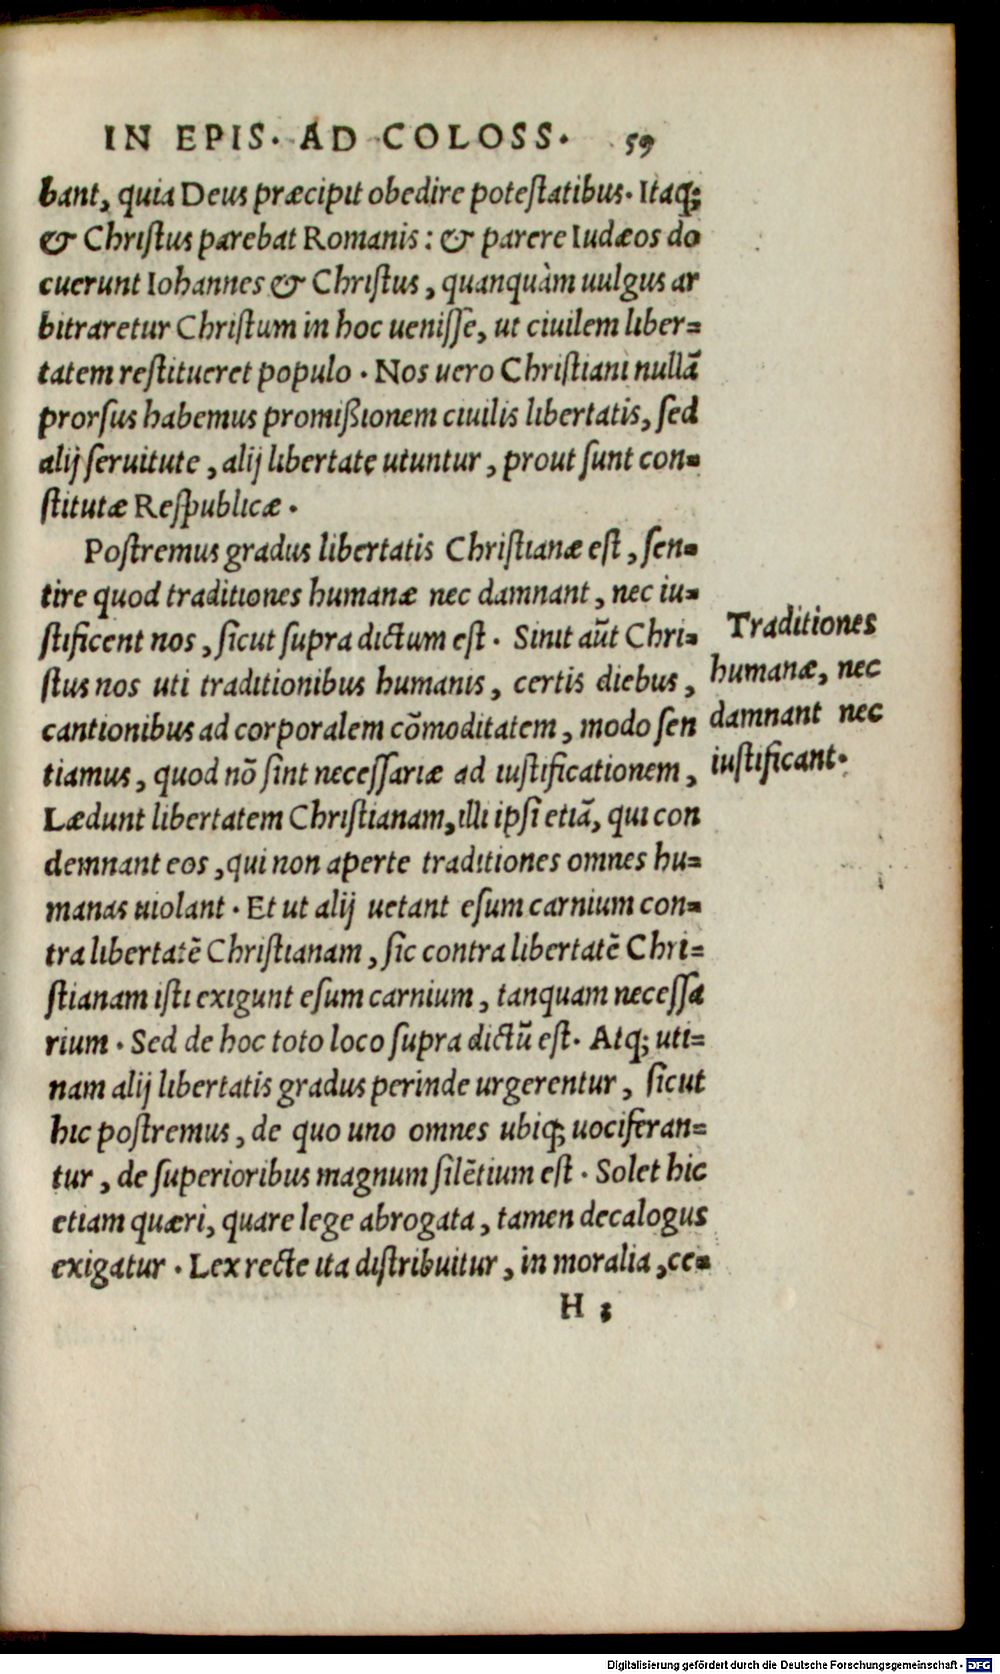 IN EPIS. AD COLOSS. 59
bant, quia Deus præcipit obedire potestatibus. Itaq;
& Christus parebat Romanis: & parere Iudæos do
cuerunt Iohannes & Christus, quanquàm uulgus ar
bitraretur Christum in hoc uenisse, ut ciuilem liber=
tatem restitueret populo. Nos uero Christiani nullā
prorsus habemus promißionem ciuilis libertatis, sed
alij seruitute, alij libertate utuntur, prout sunt con=
stitutæ Respublicæ.
Postremus gradus libertatis Christianæ est, sen=
tire quod traditiones humanæ nec damnant, nec iu=
stificent nos, sicut supra dictum est. Sinit aūt Chri=
stus nos uti traditionibus humanis, certis diebus,
cantionibus ad corporalem cōmoditatem, modo sen
tiamus, quod nō sint necessariæ ad iustificationem,
Lædunt libertatem Christianam, illi ipsi etiā, qui con
demnant eos, qui non aperte traditiones omnes hu=
manas uiolant. Et ut alij uetant esum carnium con=
tra libertatē Christianam, sic contra libertatē Chri=
stianam isti exigunt esum carnium, tanquam necessa
rium. Sed de hoc toto loco supra dictū est. Atq; uti=
nam alij libertatis gradus perinde urgerentur, sicut
hic postremus, de quo uno omnes ubiq; uociferan=
tur, de superioribus magnum silētium est. Solet hic
etiam quæri, quare lege abrogata, tamen decalogus
exigatur. Lex recte ita distribuitur, in moralia, ce=
H 3
Traditiones
humanæ, nec
damnant nec
iustificant.
Digitalisierung gefördert durch die Deutsche Forschungsgemeinschaft - DFG